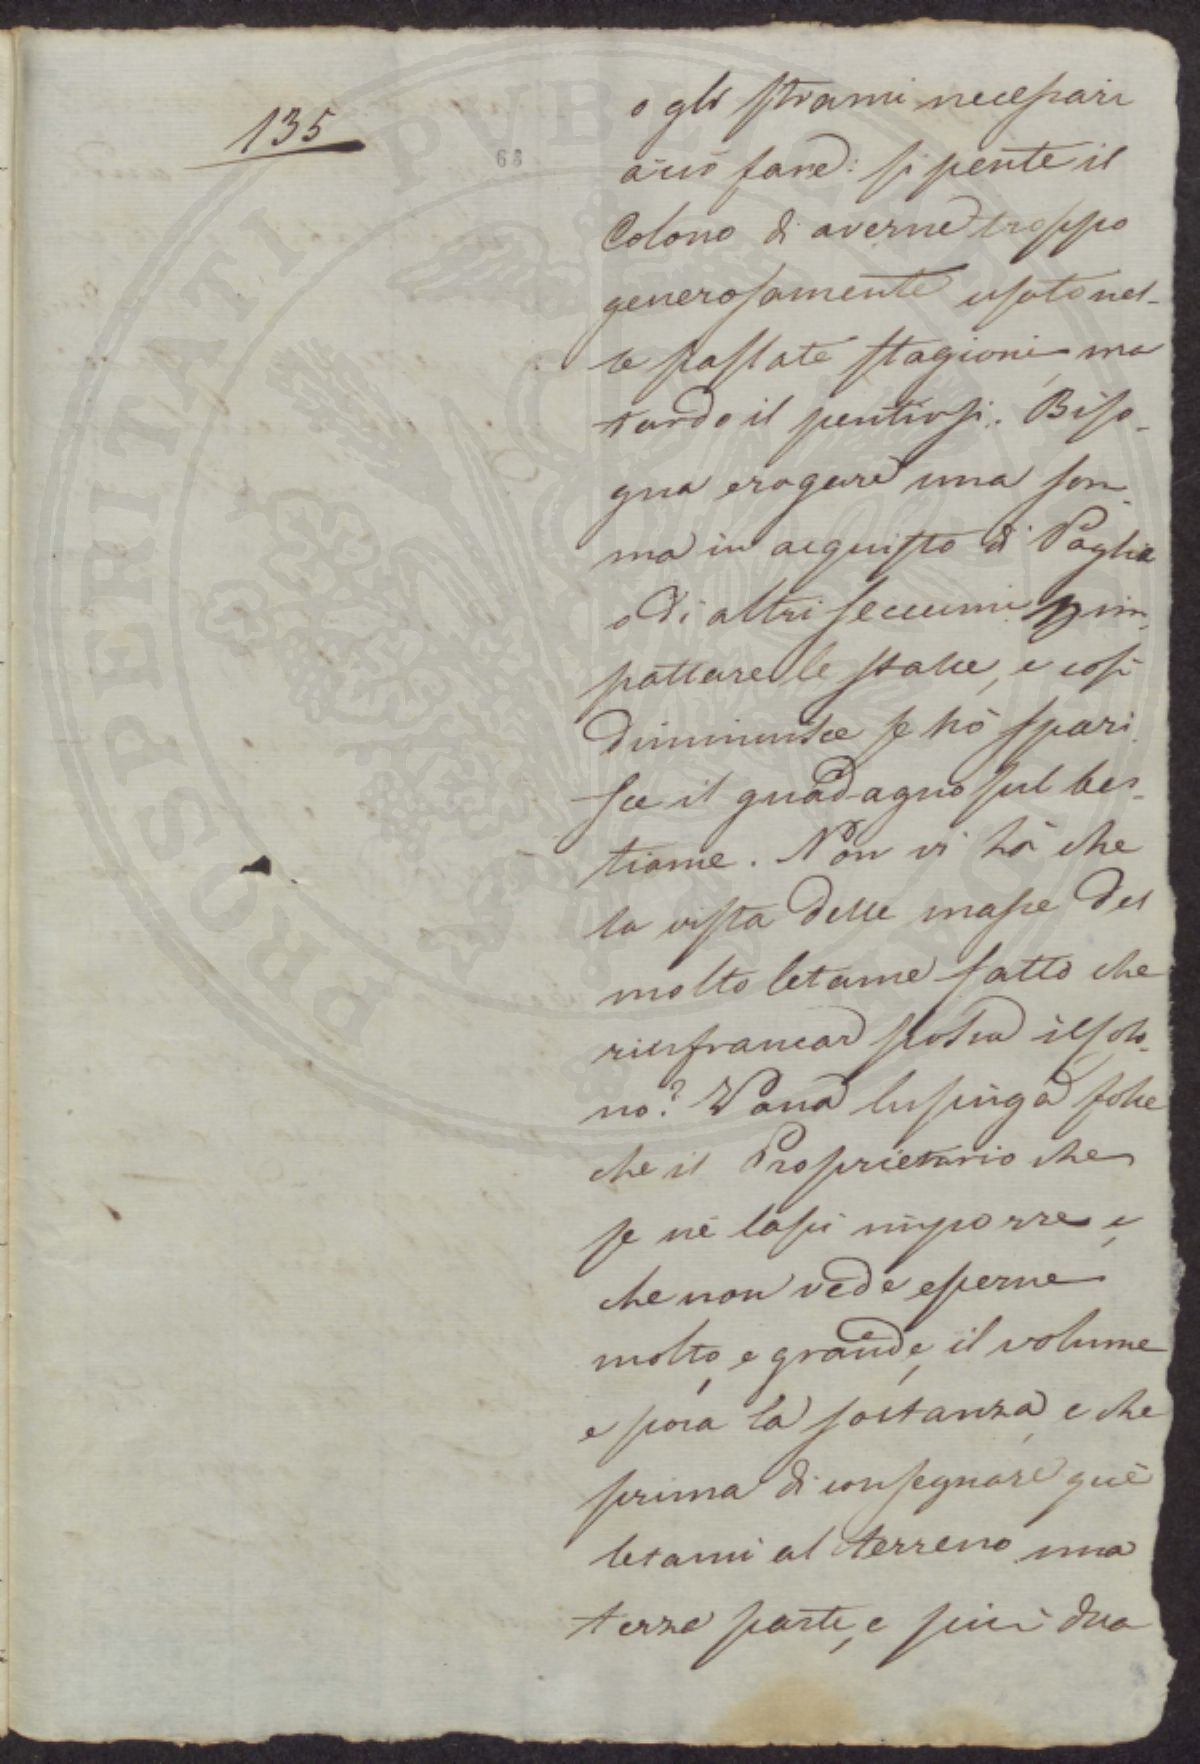 135
68
o gli strami necessari
a ciò fare: si pente il
Colono di averne troppo
generosamente usato nel-
le passate stagioni, ma
tardo il pentirsi. Biso-
gna erogare una som-
ma in acquisto di Paglia
o di altri seccumi p im-
pattare le stalle, e così
diminuisce se nò spari-
sce il guadagno sul bes-
tiame. Non vi hà che
la vista delle masse del
molto letame fatto che
rinfrancar possa il Colo-
no? Vana lusinga folle
che il Proprietario che
se ne lassi imporre e
che non vede esserne
molto, e grande, il volume
e poca la sostanza, e che
prima di consegnare que
letami al terreno una
terza parte, e più dua
PROSPERITATI PVBLICAE